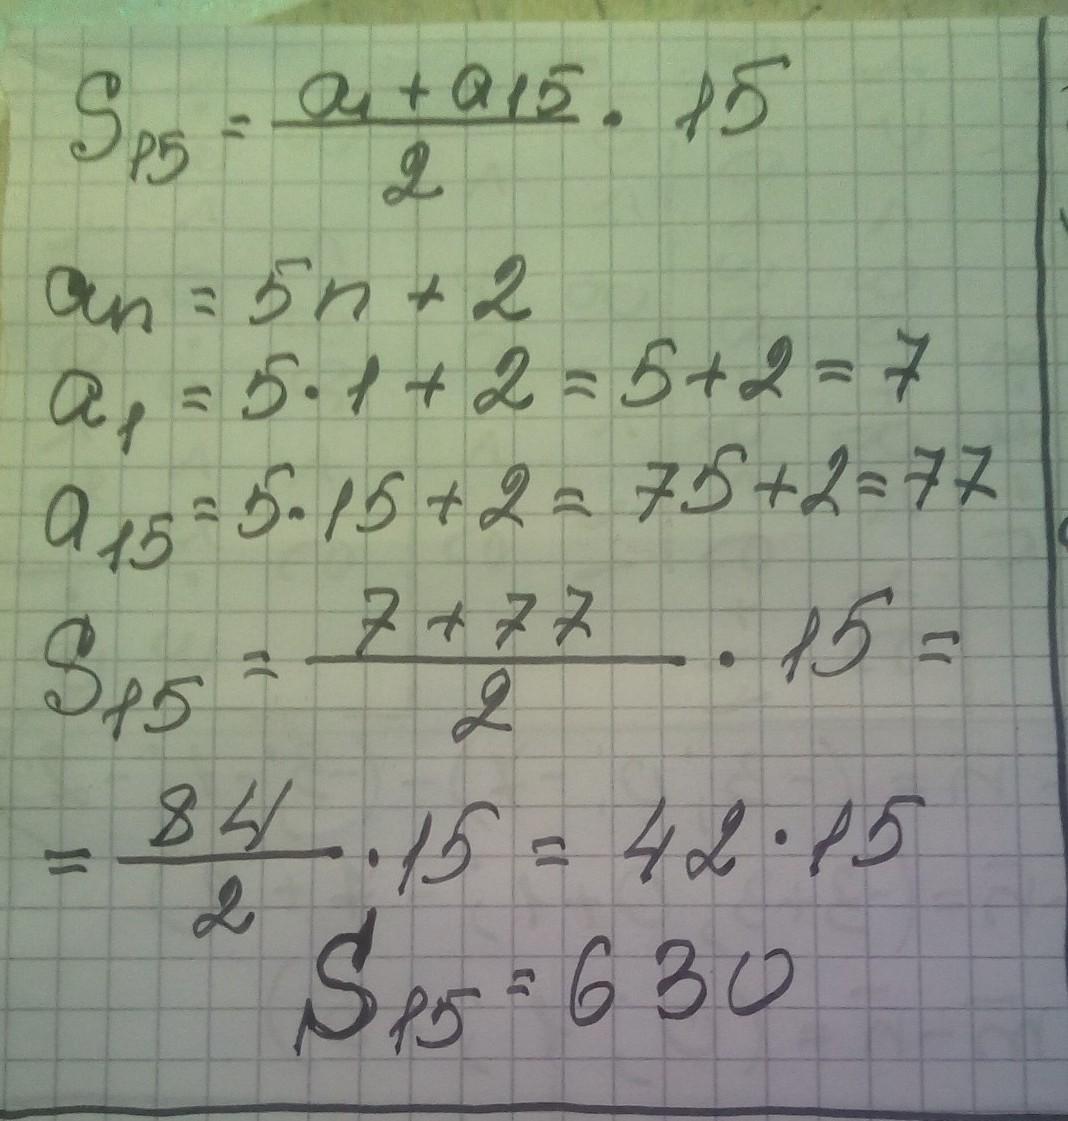 S₁₅ = (a₁ + a₁₅)/2 · 15
aₙ = 5n + 2
a₁ = 5·1 + 2 = 5+2 = 7
a₁₅ = 5·15+2 = 75+2=77
S₁₅ = (7+77)/2 · 15 =
= 84/2 · 15 = 42·15
S₁₅ = 630